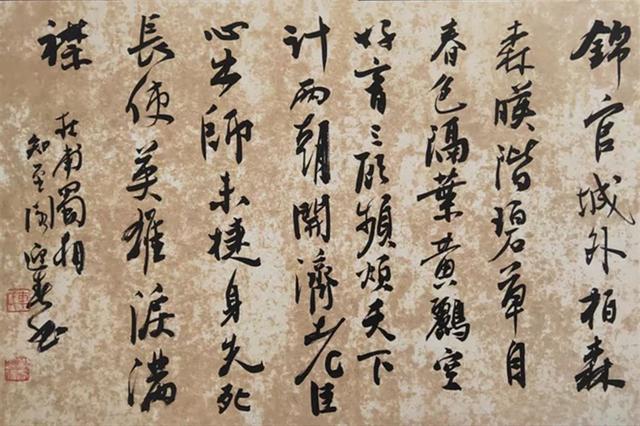 錦官城外柏森
森暎階碧草自
春色隔葉黄鸝空
好音三顧頻煩天下
計兩朝開濟老臣
心出師未捷身先死
長使英雄淚滿
襟
杜甫蜀相
迎春书